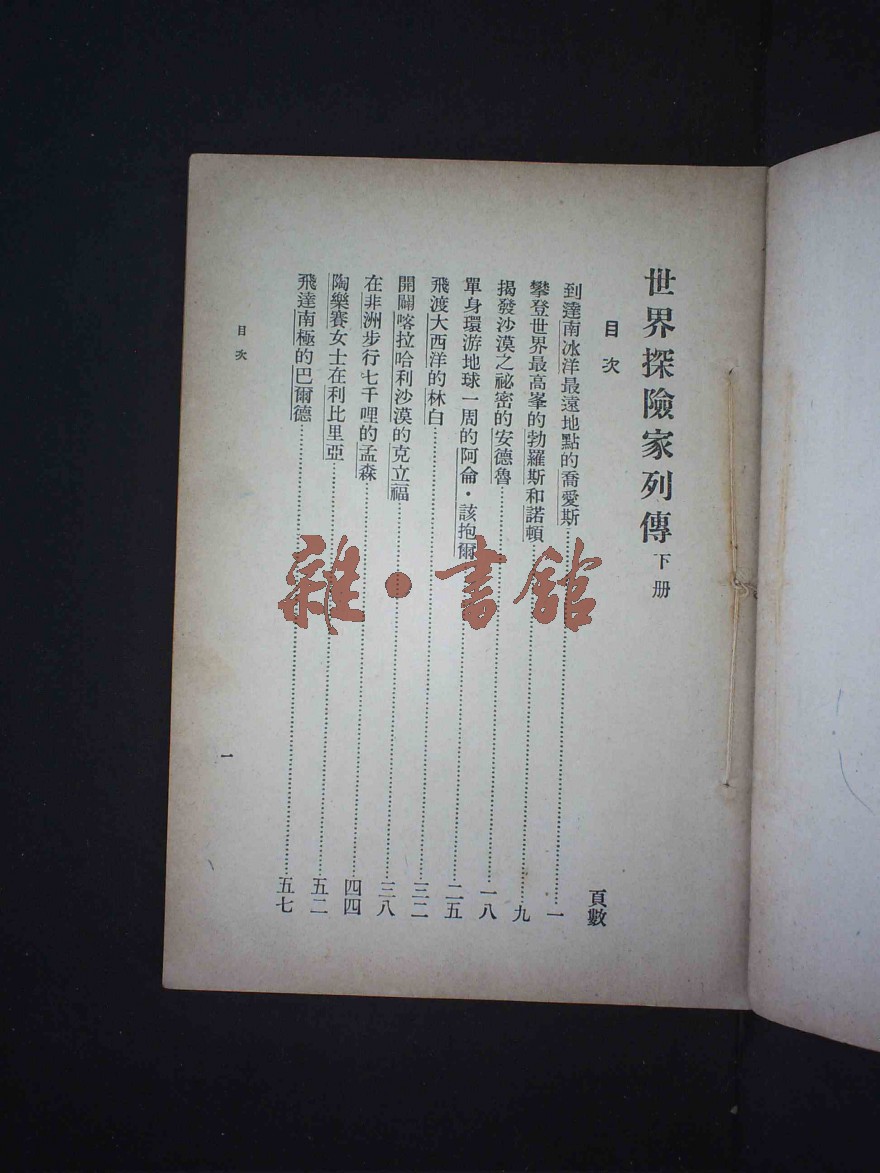 世界探險家列傳 下册
目次
頁數
到達南冰洋最遠地點的喬愛斯……一
攀登世界最高峯的勃羅斯和諾頓……九
揭發沙漠之祕密的安德魯……一八
單身環游地球一周的阿侖・該抱爾……二五
飛渡大西洋的林白……三二
開闢喀拉哈利沙漠的克立福……三八
在非洲步行七千哩的孟森……四四
陶樂賽女士在利比里亞……五二
飛達南極的巴爾德……五七
目次
一
雜・書館